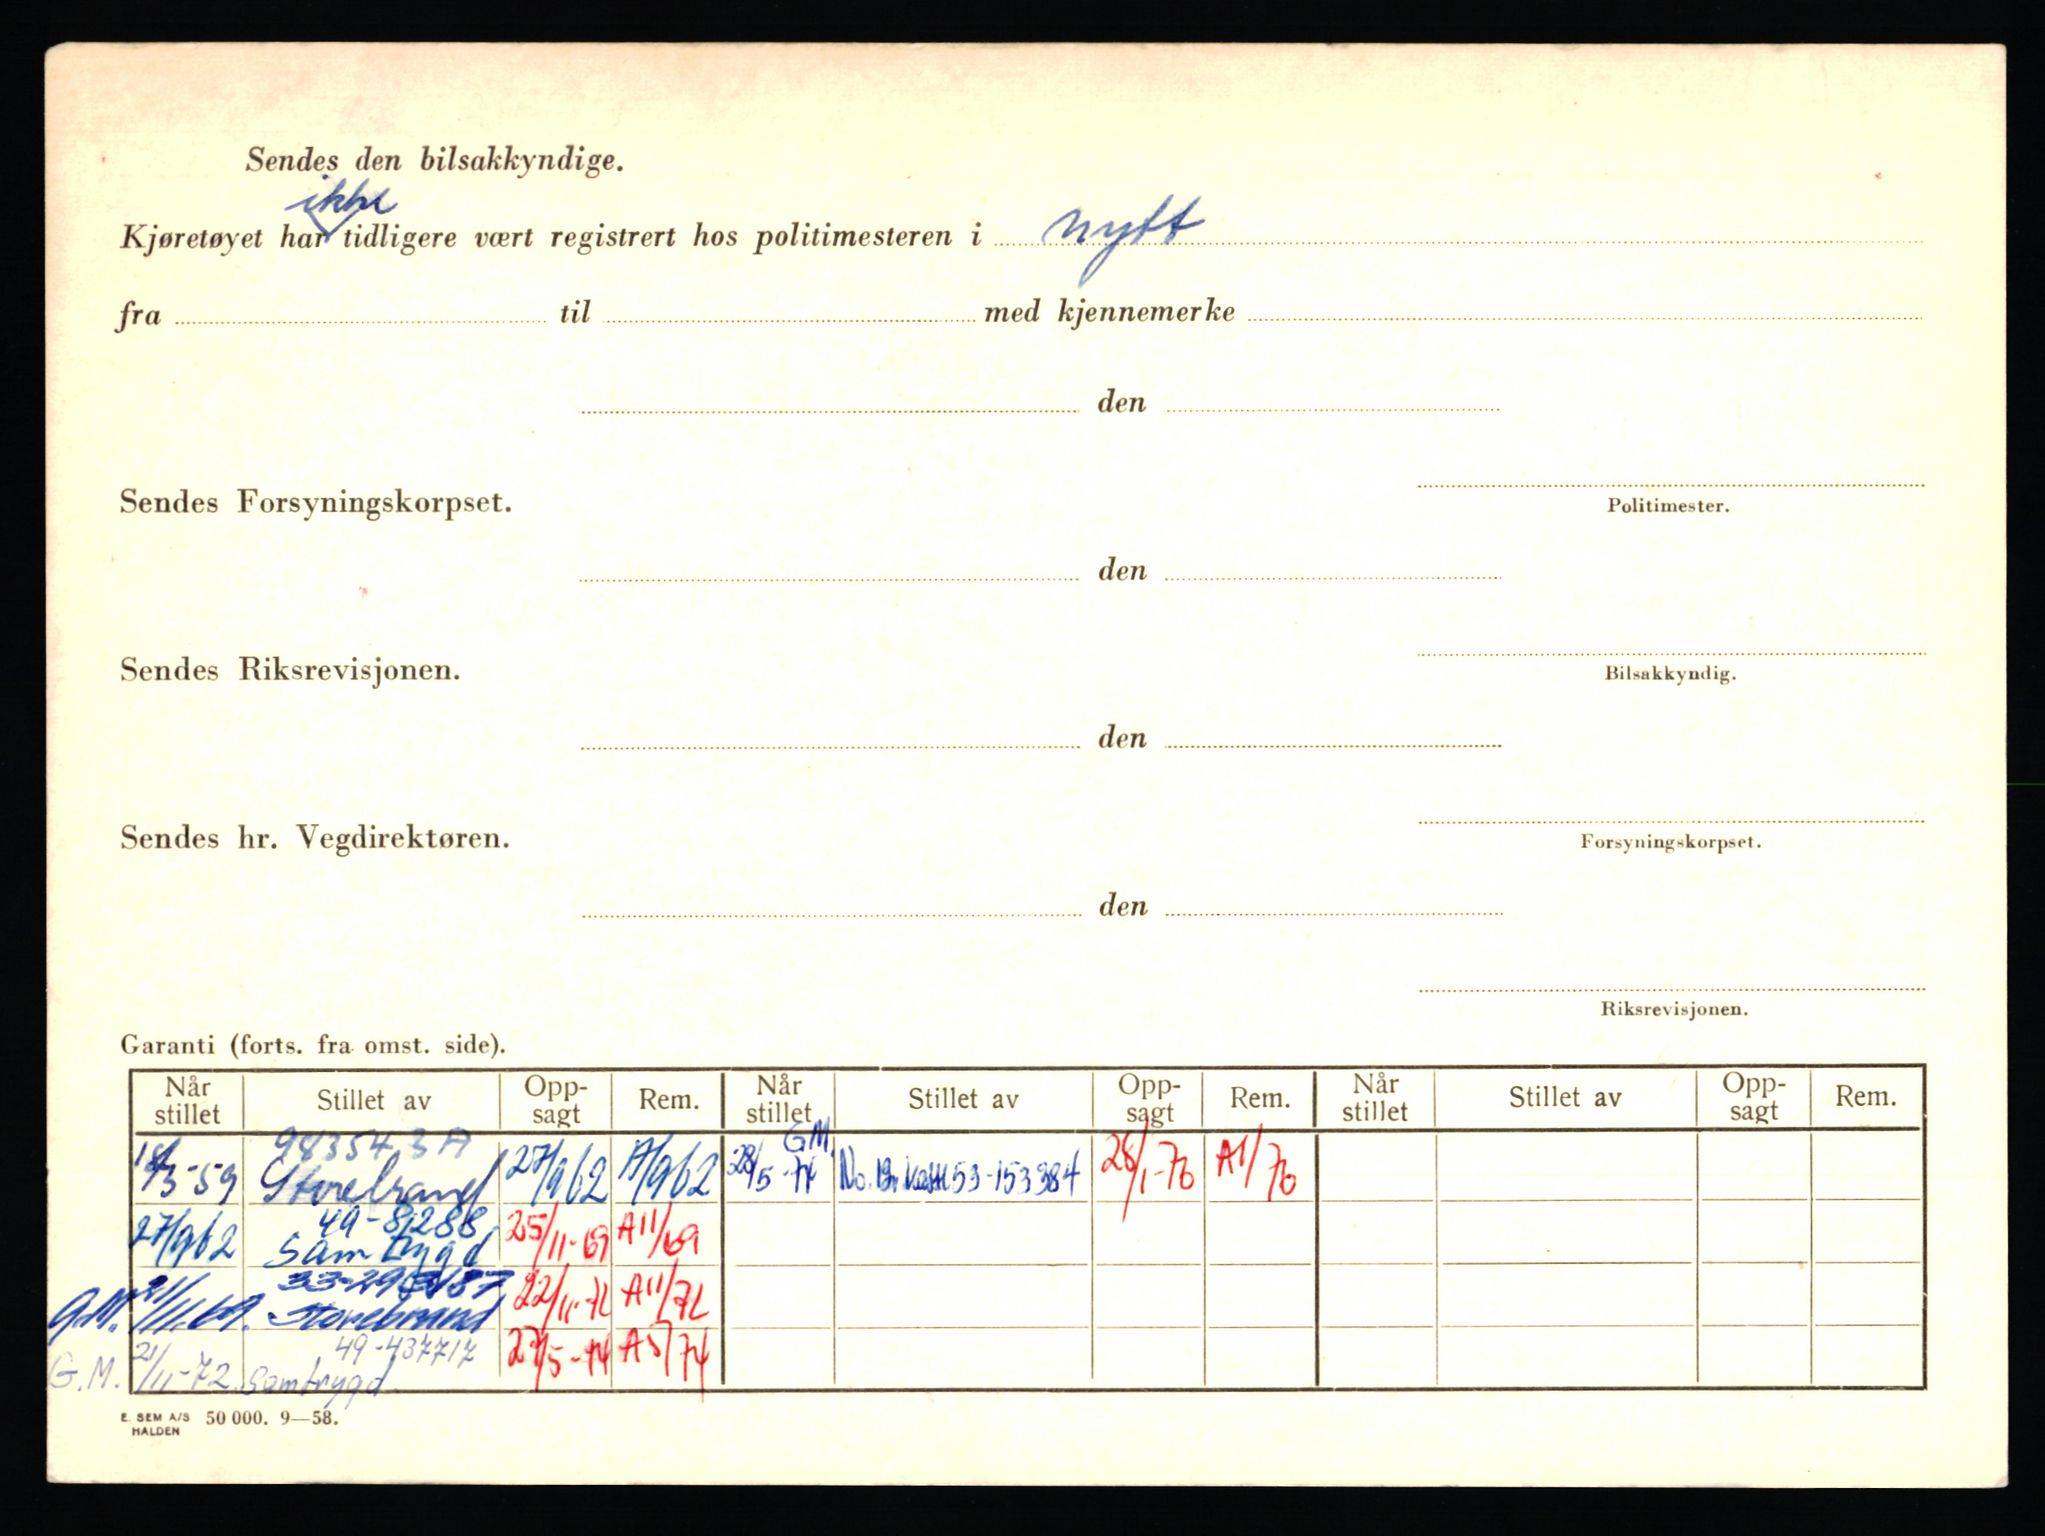 Sendes den bilsakkyndige.
ikke
Kjøretøyet har tidligere vært registrert hos politimesteren i nytt
fra til med kjennemerke
den
Politimester.
Sendes Forsyningskorpset.
den
Bilsakkyndig.
Sendes Riksrevisjonen.
den
Forsyningskorpset.
Sendes hr. Vegdirektøren.
den
Riksrevisjonen.
Garanti (forts. fra omst. side).
Når stillet Stillet av Opp-sagt Rem. Når stillet Stillet av Opp-sagt Rem. Når stillet Stillet av Opp-sagt Rem.
983543 A G.M.
18/3-59 Storebrand 27/9 62 A/9 62 28/5-74 No. 53-153384 28/1-76 A1/76
49-81288
27/9 62 Samtrygd 25/11-69 A11/69
G.M. 21/11.69. Storebrand 22/11-72 A11/72
49-437717
G.M. 21/11-72 Samtrygd 27/5-74 A5/74
E. SEM A/S 50 000. 9—58.
HALDEN